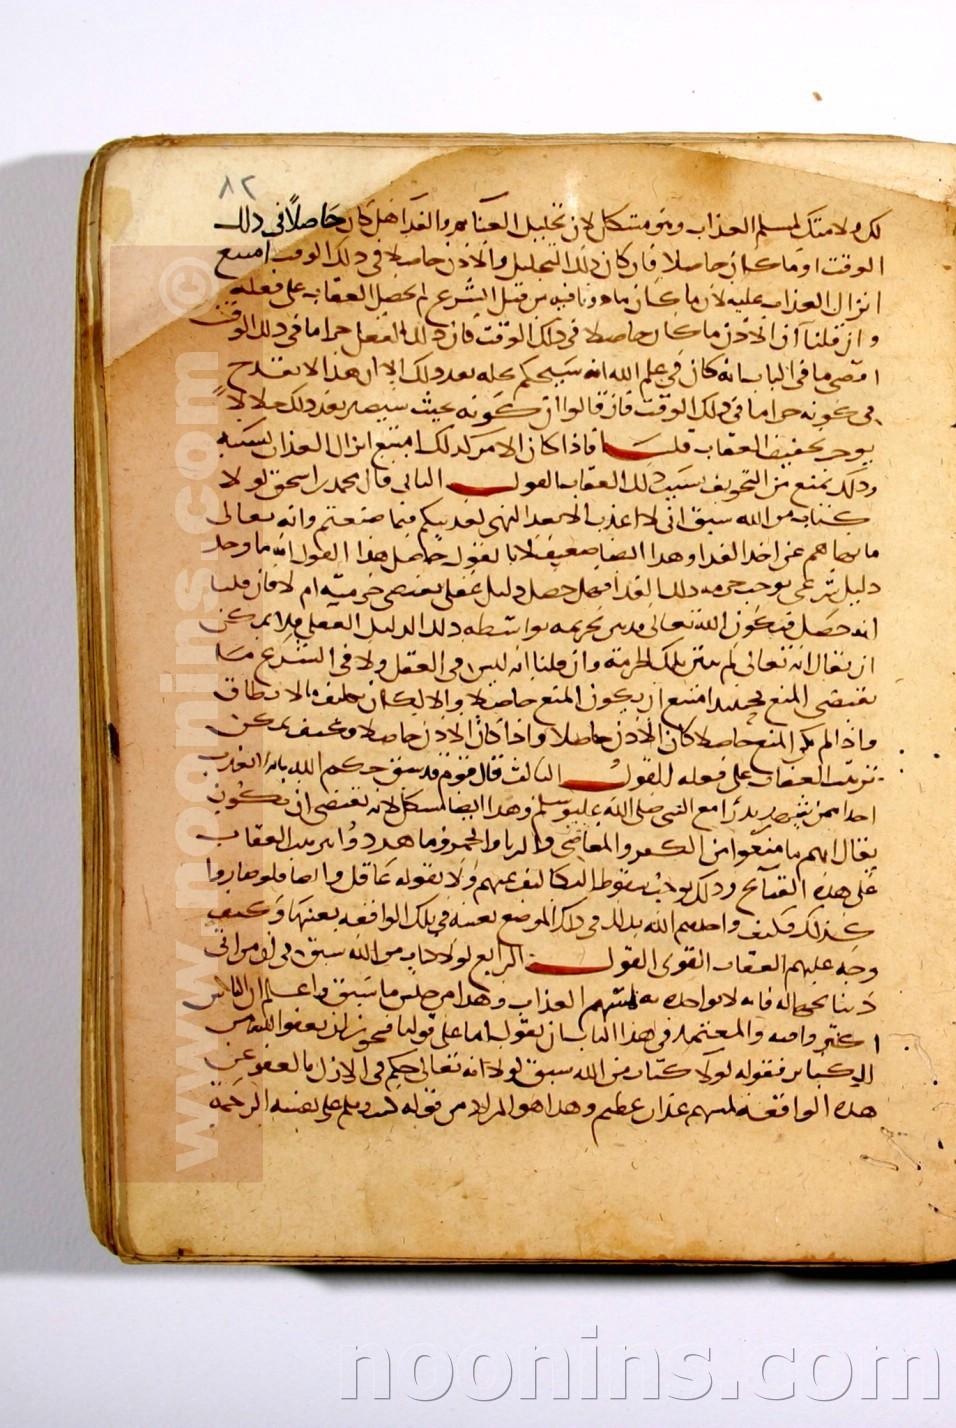 ٨٢
لك ولامتك لمسكم العذاب وهو مشكل لان تحليل الغنايم والفدا هل كان حاصلاً في ذلك
الوقت او ما كان حاصلا فان كان ذلك التحليل والاذن حاصلا في ذلك الوقت امتنع
انزال العذاب عليه لان ما كان ماذونا فيه من قبل الشرع لم يحصل العقاب على فعله
وان قلنا ان الاذن ما كان حاصلا في ذلك الوقت كان ذلك الفعل حراما في ذلك الوقت
اقصى ما في الباب انه كان في علم الله انه سيحكم بحله بعد ذلك الا ان هذا لا يقدح
في كونه حراما في ذلك الوقت فان قالوا ان كونه بحيث سيصير بعد ذلك حلالاً
يوجب تخفيف العقاب قلنا فاذا كان الامر كذلك امتنع انزال العذاب بسببه
وذلك يمنع من التخويف بسبب ذلك العقاب القول الثاني قال محمد بن اسحق لولا
كتاب من الله سبق اني لا اعذب الا بعد النهي لعذبتكم فيما صنعتم وانه تعالى
ما نهاهم عن اخذ الفدا وهذا ايضا ضعيف لانا نقول حاصل هذا القول انه ما وجد
دليل شرعي يوجب حرمة ذلك الفدا فهل حصل دليل عقلي يقتضي حرمته ام لا فان قلنا
انه حصل فيكون الله تعالى قد بين تحريمه بواسطة ذلك الدليل العقلي فلا يمكن
ان يقال انه تعالى لم يبين تلك الحرمة وان قلنا انه ليس في العقل ولا في الشرع ما
يقتضي المنع فحينئذ امتنع ان يكون المنع حاصلا والا لكان تكليف ما لا يطاق
واذا لم يكن المنع حاصلا كان الاذن حاصلا واذا كان الاذن حاصلا فكيف يمكن
ترتيب العقاب على فعله القول الثالث قال قوم قد سبق حكم الله بانه لا يعذب
احدا ممن شهد بدرا مع النبي صلى الله عليه وسلم وهذا ايضا مشكل لانه يقتضي ان يكون
يقال انهم ما منعوا من الكفر والمعاصي والربا والخمر وما هددوا بترتيب العقاب
على هذه القبائح وذلك يوجب سقوط التكاليف عنهم ولا يقوله عاقل وايضا فلو صاروا
كذلك فكيف واخذهم الله بذلك في ذلك الموضع بعينه في تلك الواقعة بعينها وكيف
وجه عليهم العقاب القوي القول الرابع لولا كتاب من الله سبق في ان من اتى
ذنبا بجهالة فانه لا يواخذه به لمسهم العذاب وهذا من جنس ما سبق واعلم ان الناس
اكثروا فيه والمعتمد في هذا الباب ان نقول اما على قولنا فيجوز ان يعفو الله عن
الكبائر فقوله لولا كتاب من الله سبق لولا انه تعالى حكم في الازل بالعفو عن
هذه الواقعة لمسهم عذاب عظيم وهذا هو المراد من قوله كتب ربكم على نفسه الرحمة
www.noonins.com ©
noonins.com